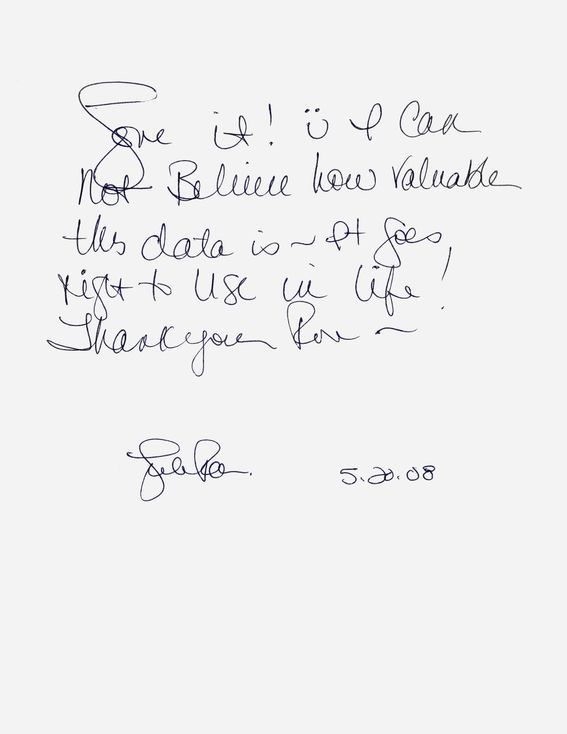 Love it! ü I Can
Not Believe how valuable
this data is ~ It goes
right to use in life!
Thank you Ron ~
5.20.08